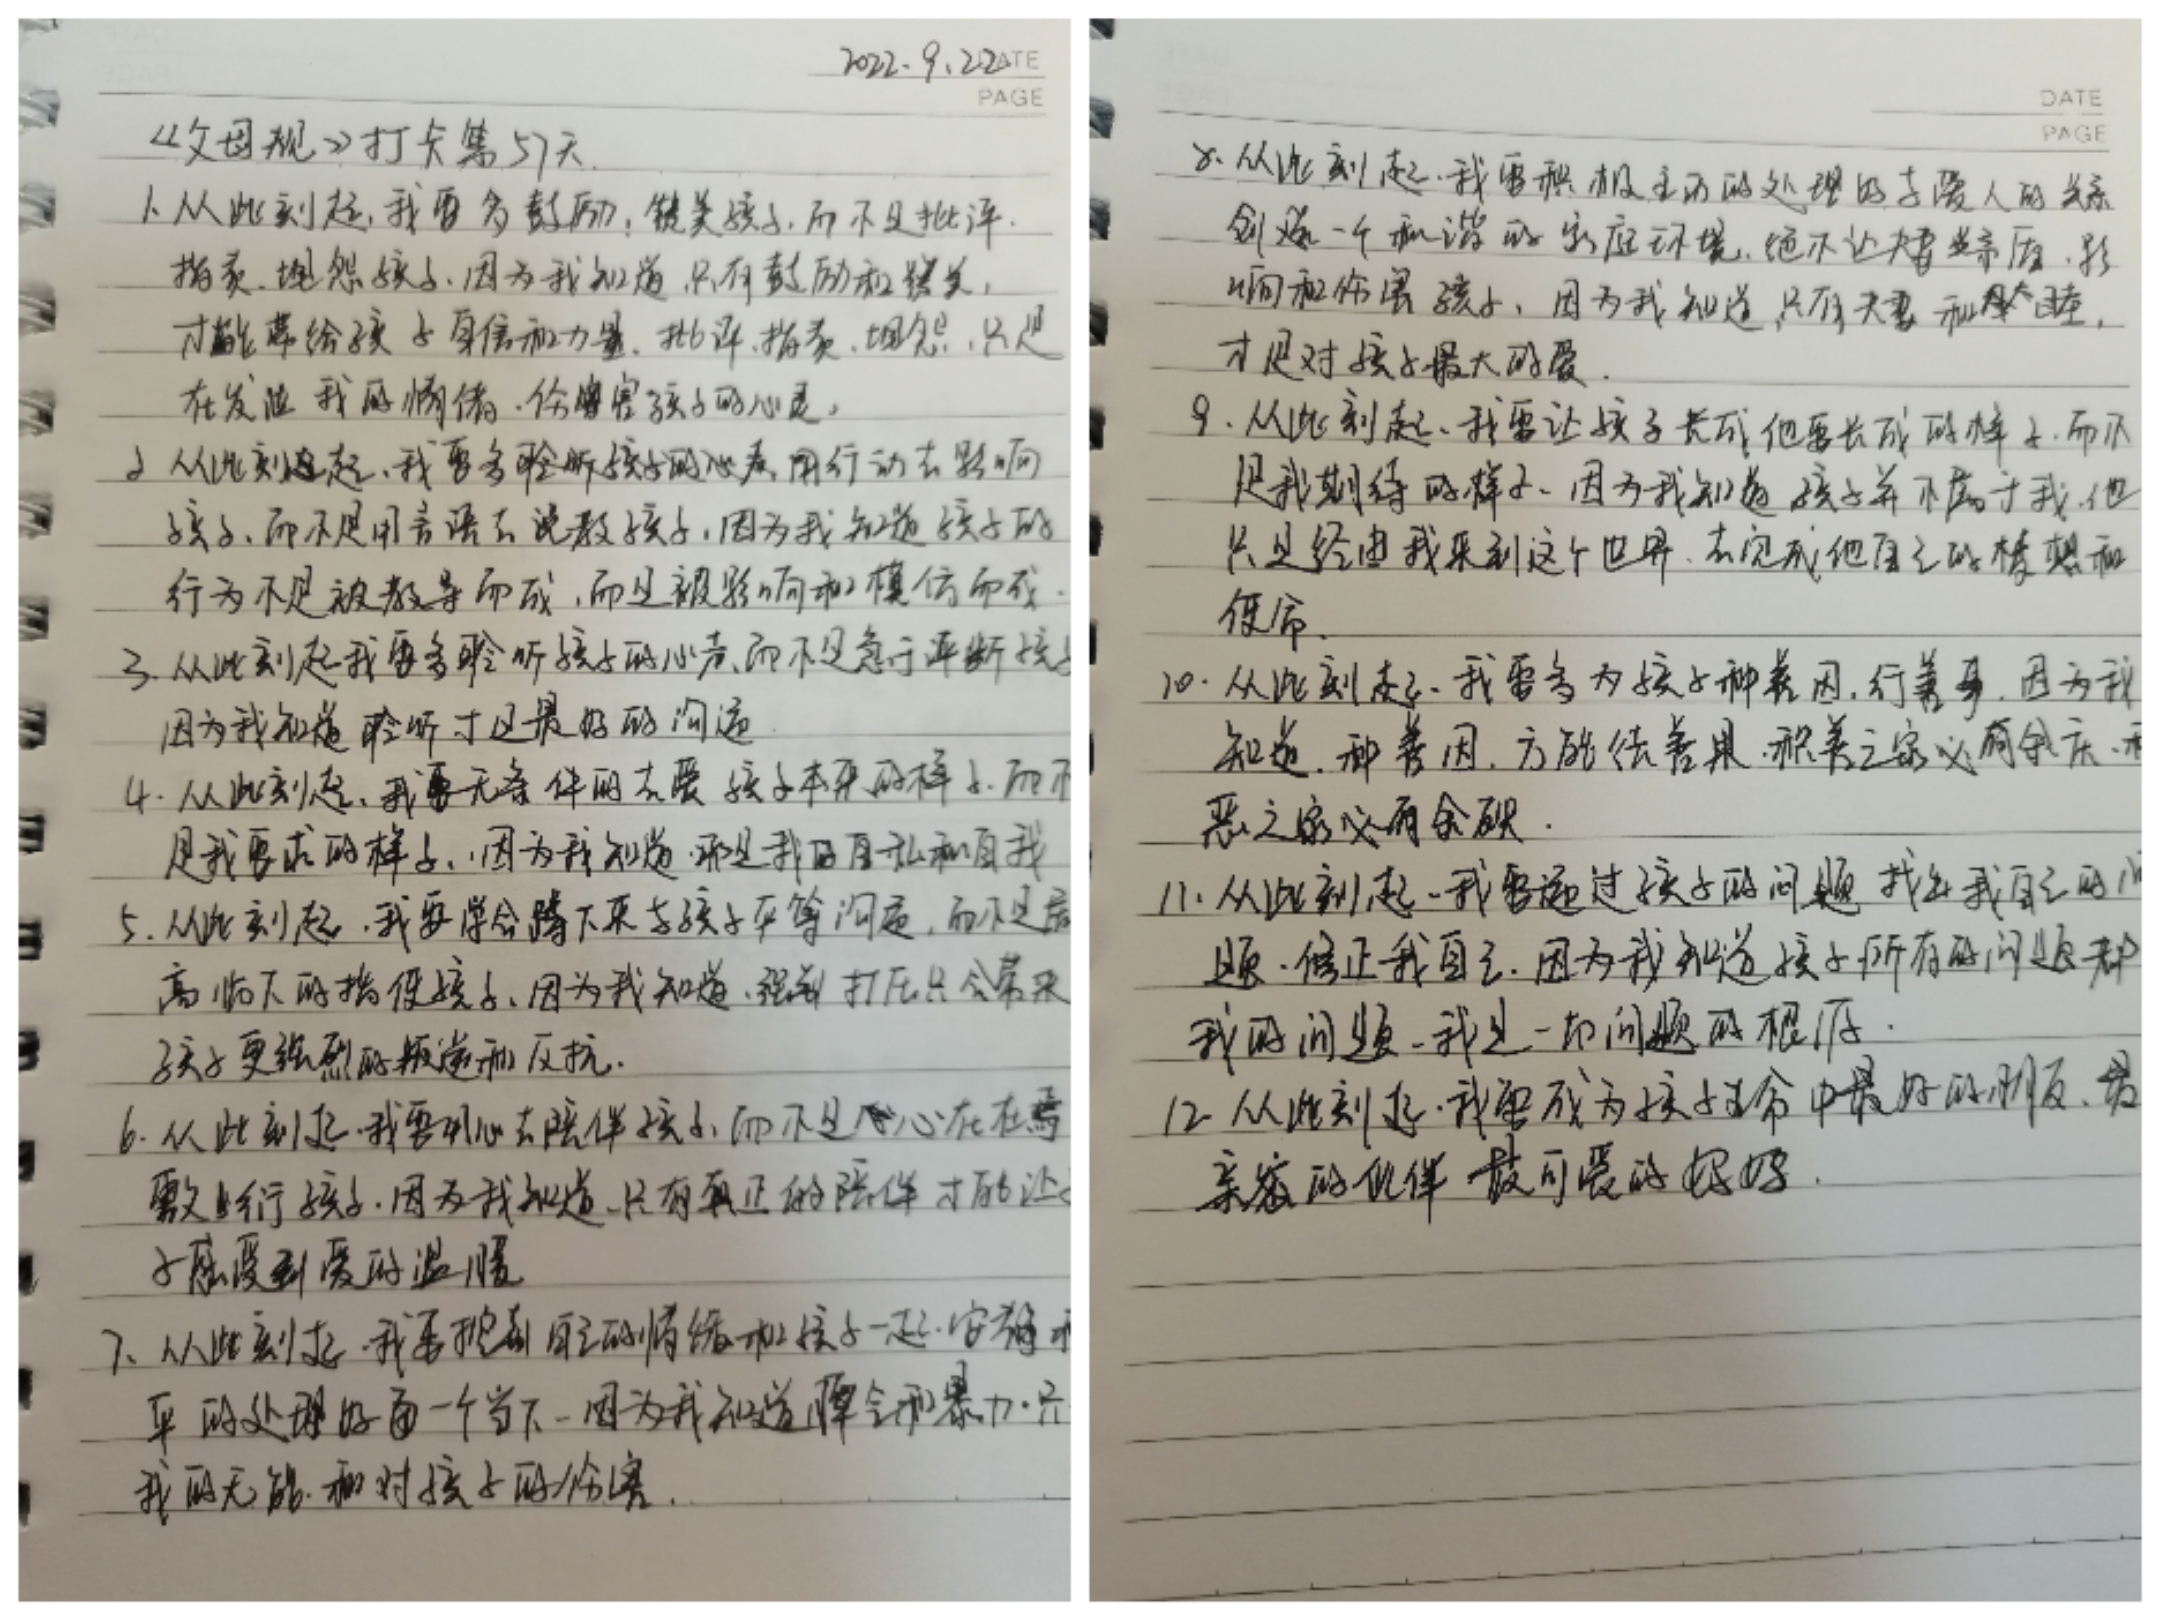 2022.9.22
DATE
PAGE
《父母规》打卡第57天
1.从此刻起,我要多鼓励,赞美孩子,而不是批评.
指责.埋怨孩子.因为我知道,只有鼓励和赞美,
才能带给孩子自信和力量.批评.指责.埋怨.只是
在发泄我的情绪.伤害孩子的心灵。
2 从此刻起.我要多聆听孩子的心声用行动去影响
孩子.而不是用言语去说教孩子.因为我知道孩子的
行为不是被教导而成.而是被影响和模仿而成.
3.从此刻起我要多聆听孩子的心声.而不是急于评断孩子
因为我知道聆听才是最好的沟通
4.从此刻起.我要无条件的去爱孩子本来的样子.而不
是我要求的样子.因为我知道.那是我的自私和自我
5.从此刻起.我要学会蹲下来与孩子平等沟通,而不是居
高临下的指使孩子.因为我知道.强制打压只会带来
孩子更强烈的叛逆和反抗.
6.从此刻起.我要用心去陪伴孩子.而不是心不在焉
敷衍孩子.因为我知道.只有真正的陪伴才能让
子感受到爱的温暖
7.从此刻起.我要控制自己的情绪和孩子一起.安静
平的处理好每一个当下.因为我知道脾气和暴力.只
我的无能.和对孩子的伤害.
DATE
PAGE
8.从此刻起.我要积极主动的处理好与爱人的关系
创造一个和谐的家庭环境.绝不让夫妻关系.影
响和伤害孩子.因为我知道,只有夫妻和睦,
才是对孩子最大的爱.
9.从此刻起.我要让孩子长成他要长成的样子.而不
是我期待的样子.因为我知道孩子并不属于我.他
只是经由我来到这个世界.去完成他自己的梦想和
使命.
10.从此刻起.我要多为孩子种善因.行善事.因为我
知道.种善因.方能结善果.积善之家必有余庆.
恶之家必有余殃.
11.从此刻起.我要通过孩子的问题找出我自己的问
题.修正我自己.因为我知道孩子所有的问题都
我的问题.我是一切问题的根源.
12 从此刻起.我要成为孩子生命中最好的朋友.最
亲密的伙伴 最可爱的妈妈.